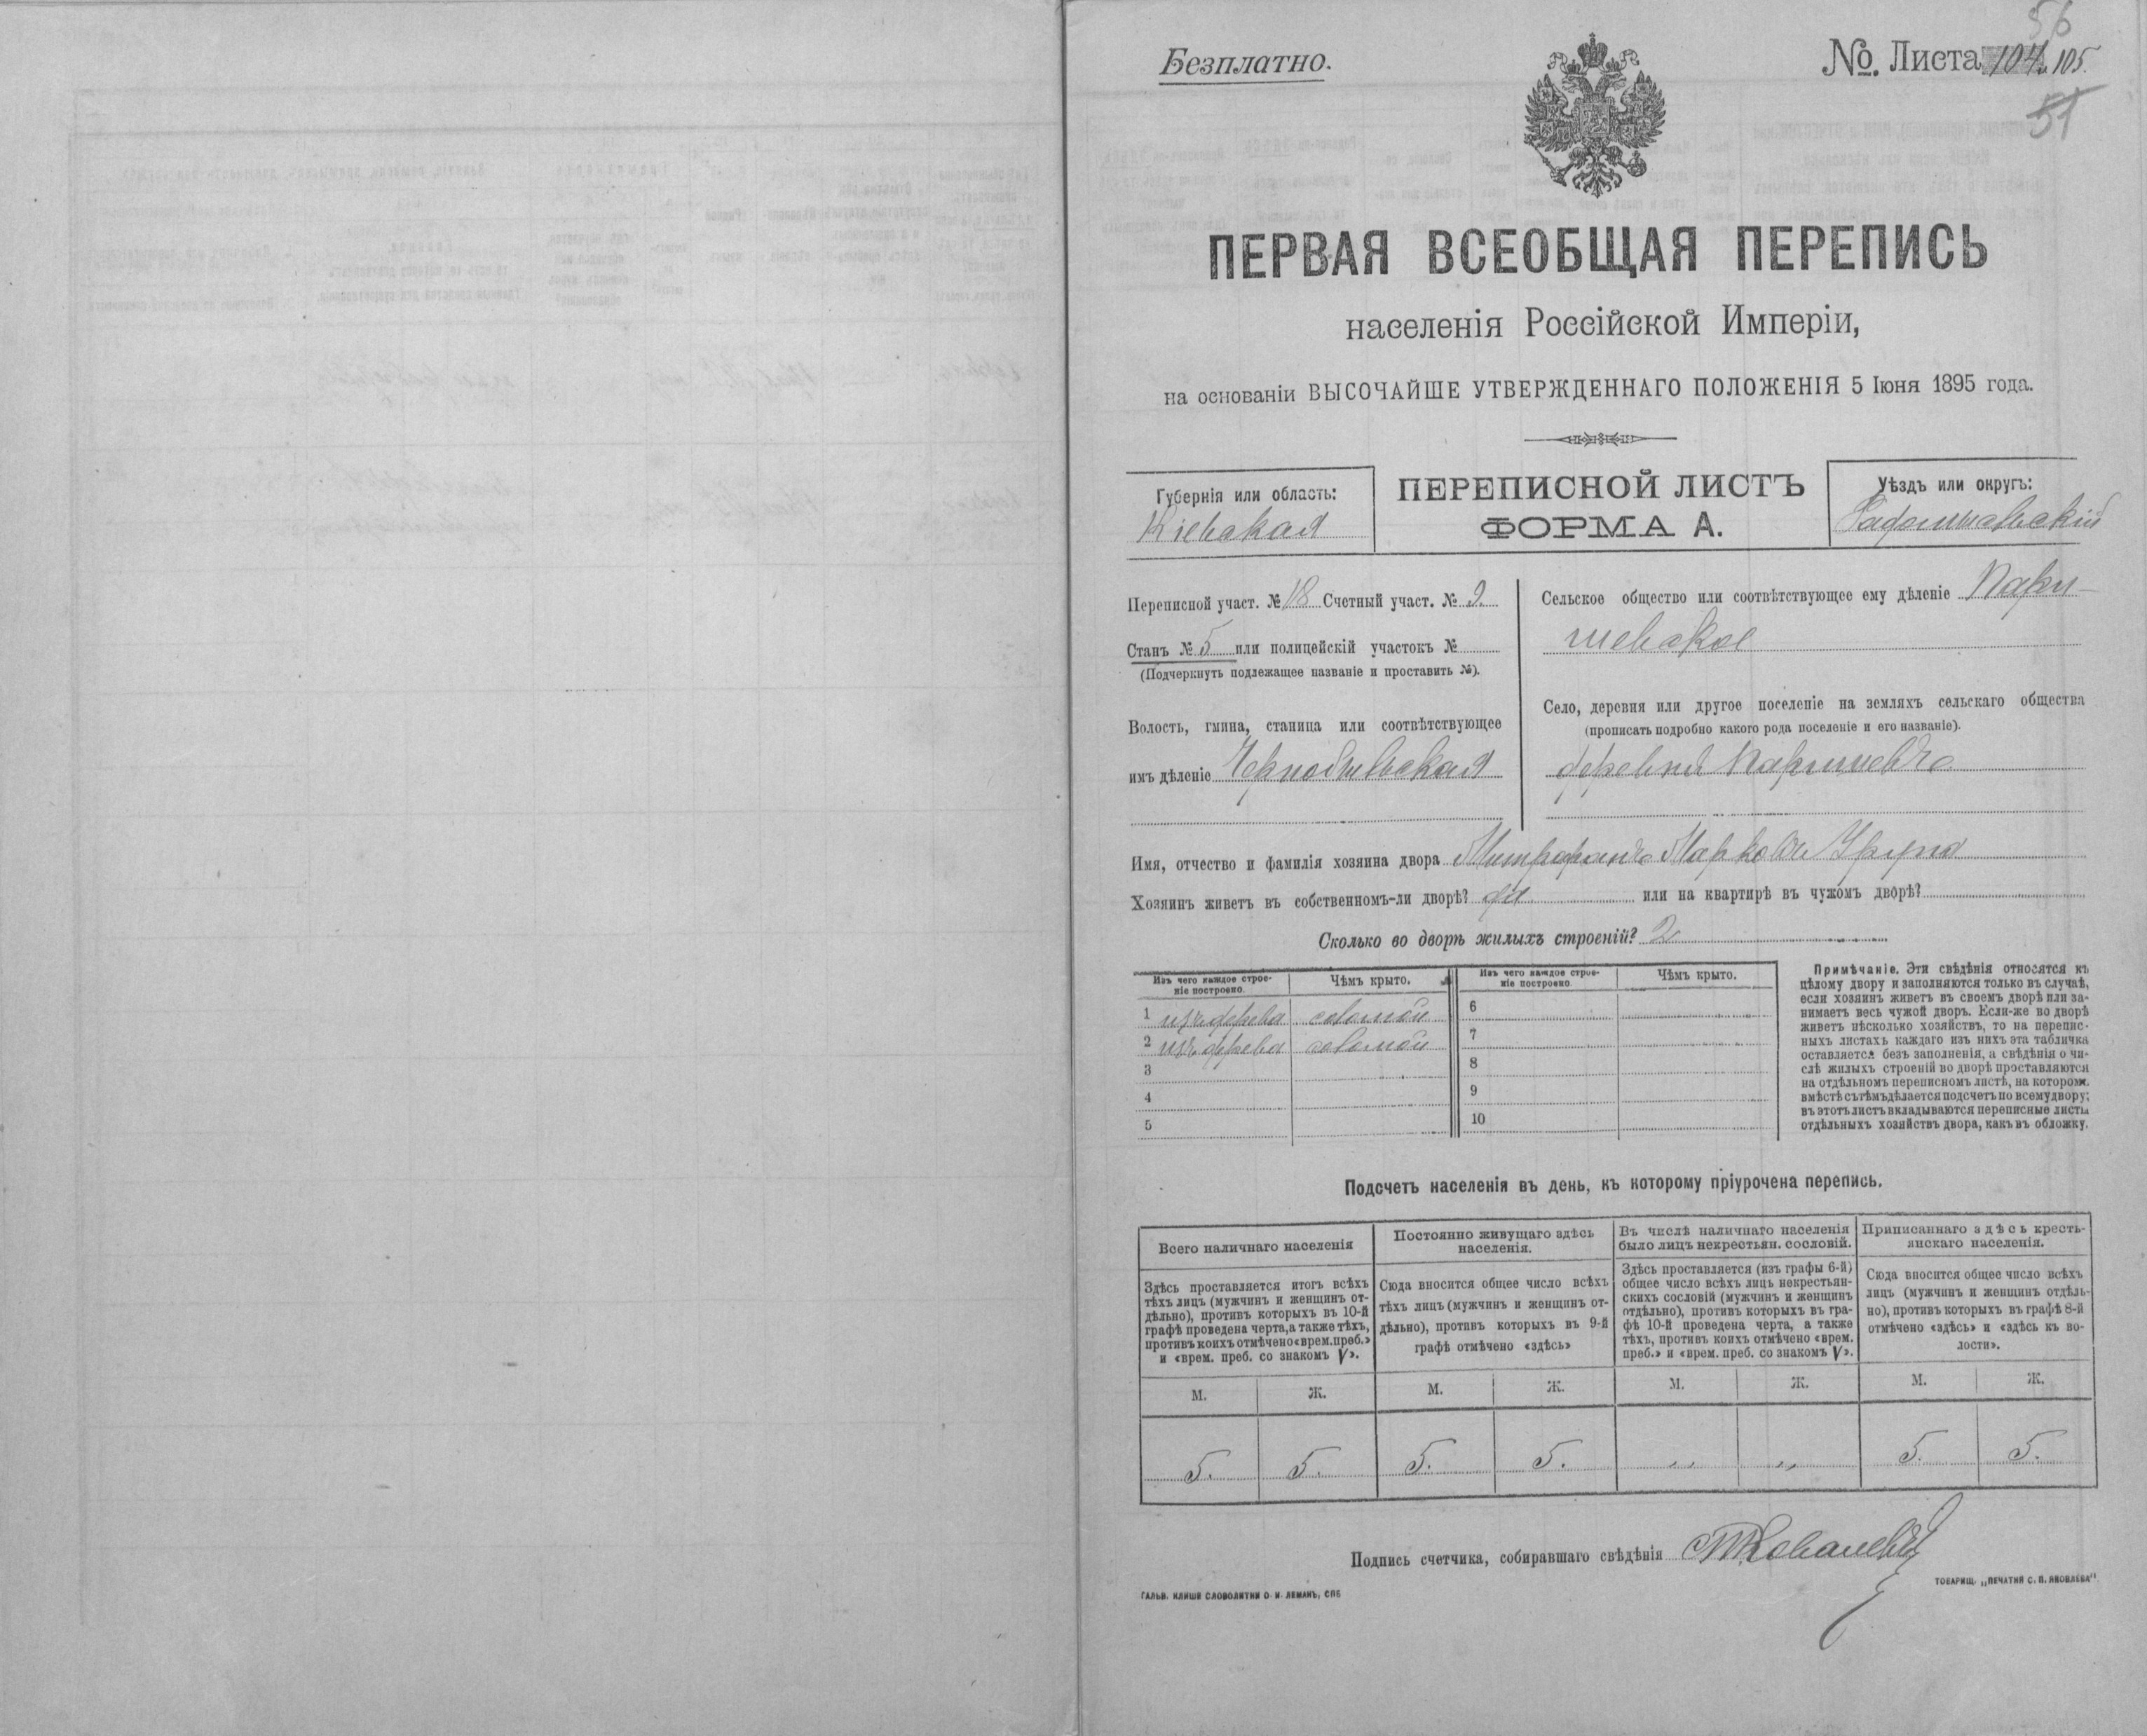 56
Безплатно.
No. Листа 104 и 105.
51
ПЕРВАЯ ВСЕОБЩАЯ ПЕРЕПИСЬ
населенія Россійской Имперіи,
на основаніи ВЫСОЧАЙШЕ УТВЕРЖДЕННАГО ПОЛОЖЕНІЯ 5 Іюня 1895 года.
Губернія или область:
Кіевская
ПЕРЕПИСНОЙ ЛИСТЪ
ФОРМА А.
Уѣздъ или округъ:
Радомысльскій
Переписной участ. № 18 Счетный участ. № 9.
Станъ № 5 или полицейскій участокъ №
(Подчеркнуть подлежащее названіе и проставить №).
Волость, гмина, станица или соотвѣтствующее
имъ дѣленіе Чернобыльская
Сельское общество или соотвѣтствующее ему дѣленіе Пари-
шевское
Село, деревня или другое поселеніе на земляхъ сельскаго общества
(прописать подробно какого рода поселеніе и его названіе).
деревня Паришевъ
Имя, отчество и фамилія хозяина двора Митрофанъ Марковъ
Хозяинъ живетъ въ собственномъ-ли дворѣ? да или на квартирѣ въ чужомъ дворѣ?
Сколько во дворѣ жилыхъ строеній? 2
Изъ чего каждое строе-
ніе построено.
Чѣмъ крыто.
Изъ чего каждое строе-
ніе построено.
Чѣмъ крыто.
1 изъ дерева соломой
2 изъ дерева соломой
3
4
5
6
7
8
9
10
Примѣчаніе. Эти свѣдѣнія относятся къ
цѣлому двору и заполняются только въ случаѣ,
если хозяинъ живетъ въ своемъ дворѣ или за-
нимаетъ весь чужой дворъ. Если-же во дворѣ
живетъ нѣсколько хозяйствъ, то на перепис-
ныхъ листахъ каждаго изъ нихъ эта табличка
оставляется безъ заполненія, а свѣдѣнія о чи-
слѣ жилыхъ строеній во дворѣ проставляются
на отдѣльномъ переписномъ листѣ, на которомъ
вмѣстѣ съ тѣмъ дѣлается подсчетъ по всему двору;
въ этотъ листъ вкладываются переписные листы
отдѣльныхъ хозяйствъ двора, какъ въ обложку.
Подсчетъ населенія въ день, къ которому пріурочена перепись.
Всего наличнаго населенія
Здѣсь проставляется итогъ всѣхъ
тѣхъ лицъ (мужчинъ и женщинъ от-
дѣльно), противъ которыхъ въ 10-й
графѣ проведена черта, а также тѣхъ,
противъ коихъ отмѣчено «врем. преб.»
и «врем. преб. со знакомъ V».
Постоянно живущаго здѣсь
населенія.
Сюда вносится общее число всѣхъ
тѣхъ лицъ (мужчинъ и женщинъ от-
дѣльно), противъ которыхъ въ 9-й
графѣ отмѣчено «здѣсь»
Въ числѣ наличнаго населенія
было лицъ некрестьян. сословій.
Здѣсь проставляется (изъ графы 6-й)
общее число всѣхъ лицъ некрестьян-
скихъ сословій (мужчинъ и женщинъ
отдѣльно), противъ которыхъ въ гра-
фѣ 10-й проведена черта, а также
тѣхъ, противъ коихъ отмѣчено «врем.
преб.» и «врем. преб. со знакомъ V».
Приписаннаго здѣсь кресть-
янскаго населенія.
Сюда вносится общее число всѣхъ
лицъ (мужчинъ и женщинъ отдѣль-
но), противъ которыхъ въ графѣ 8-й
отмѣчено «здѣсь» и «здѣсь къ во-
лости».
М. Ж. М. Ж. М. Ж. М. Ж.
5. 5. 5. 5. „ „ 5. 5.
Подпись счетчика, собиравшаго свѣдѣнія
ГАЛЬВ. КЛИШЕ СЛОВОЛИТНИ О. И. ЛЕМАНЪ, СПБ
ТОВАРИЩ. „ПЕЧАТНЯ С. П. ЯКОВЛЕВА"